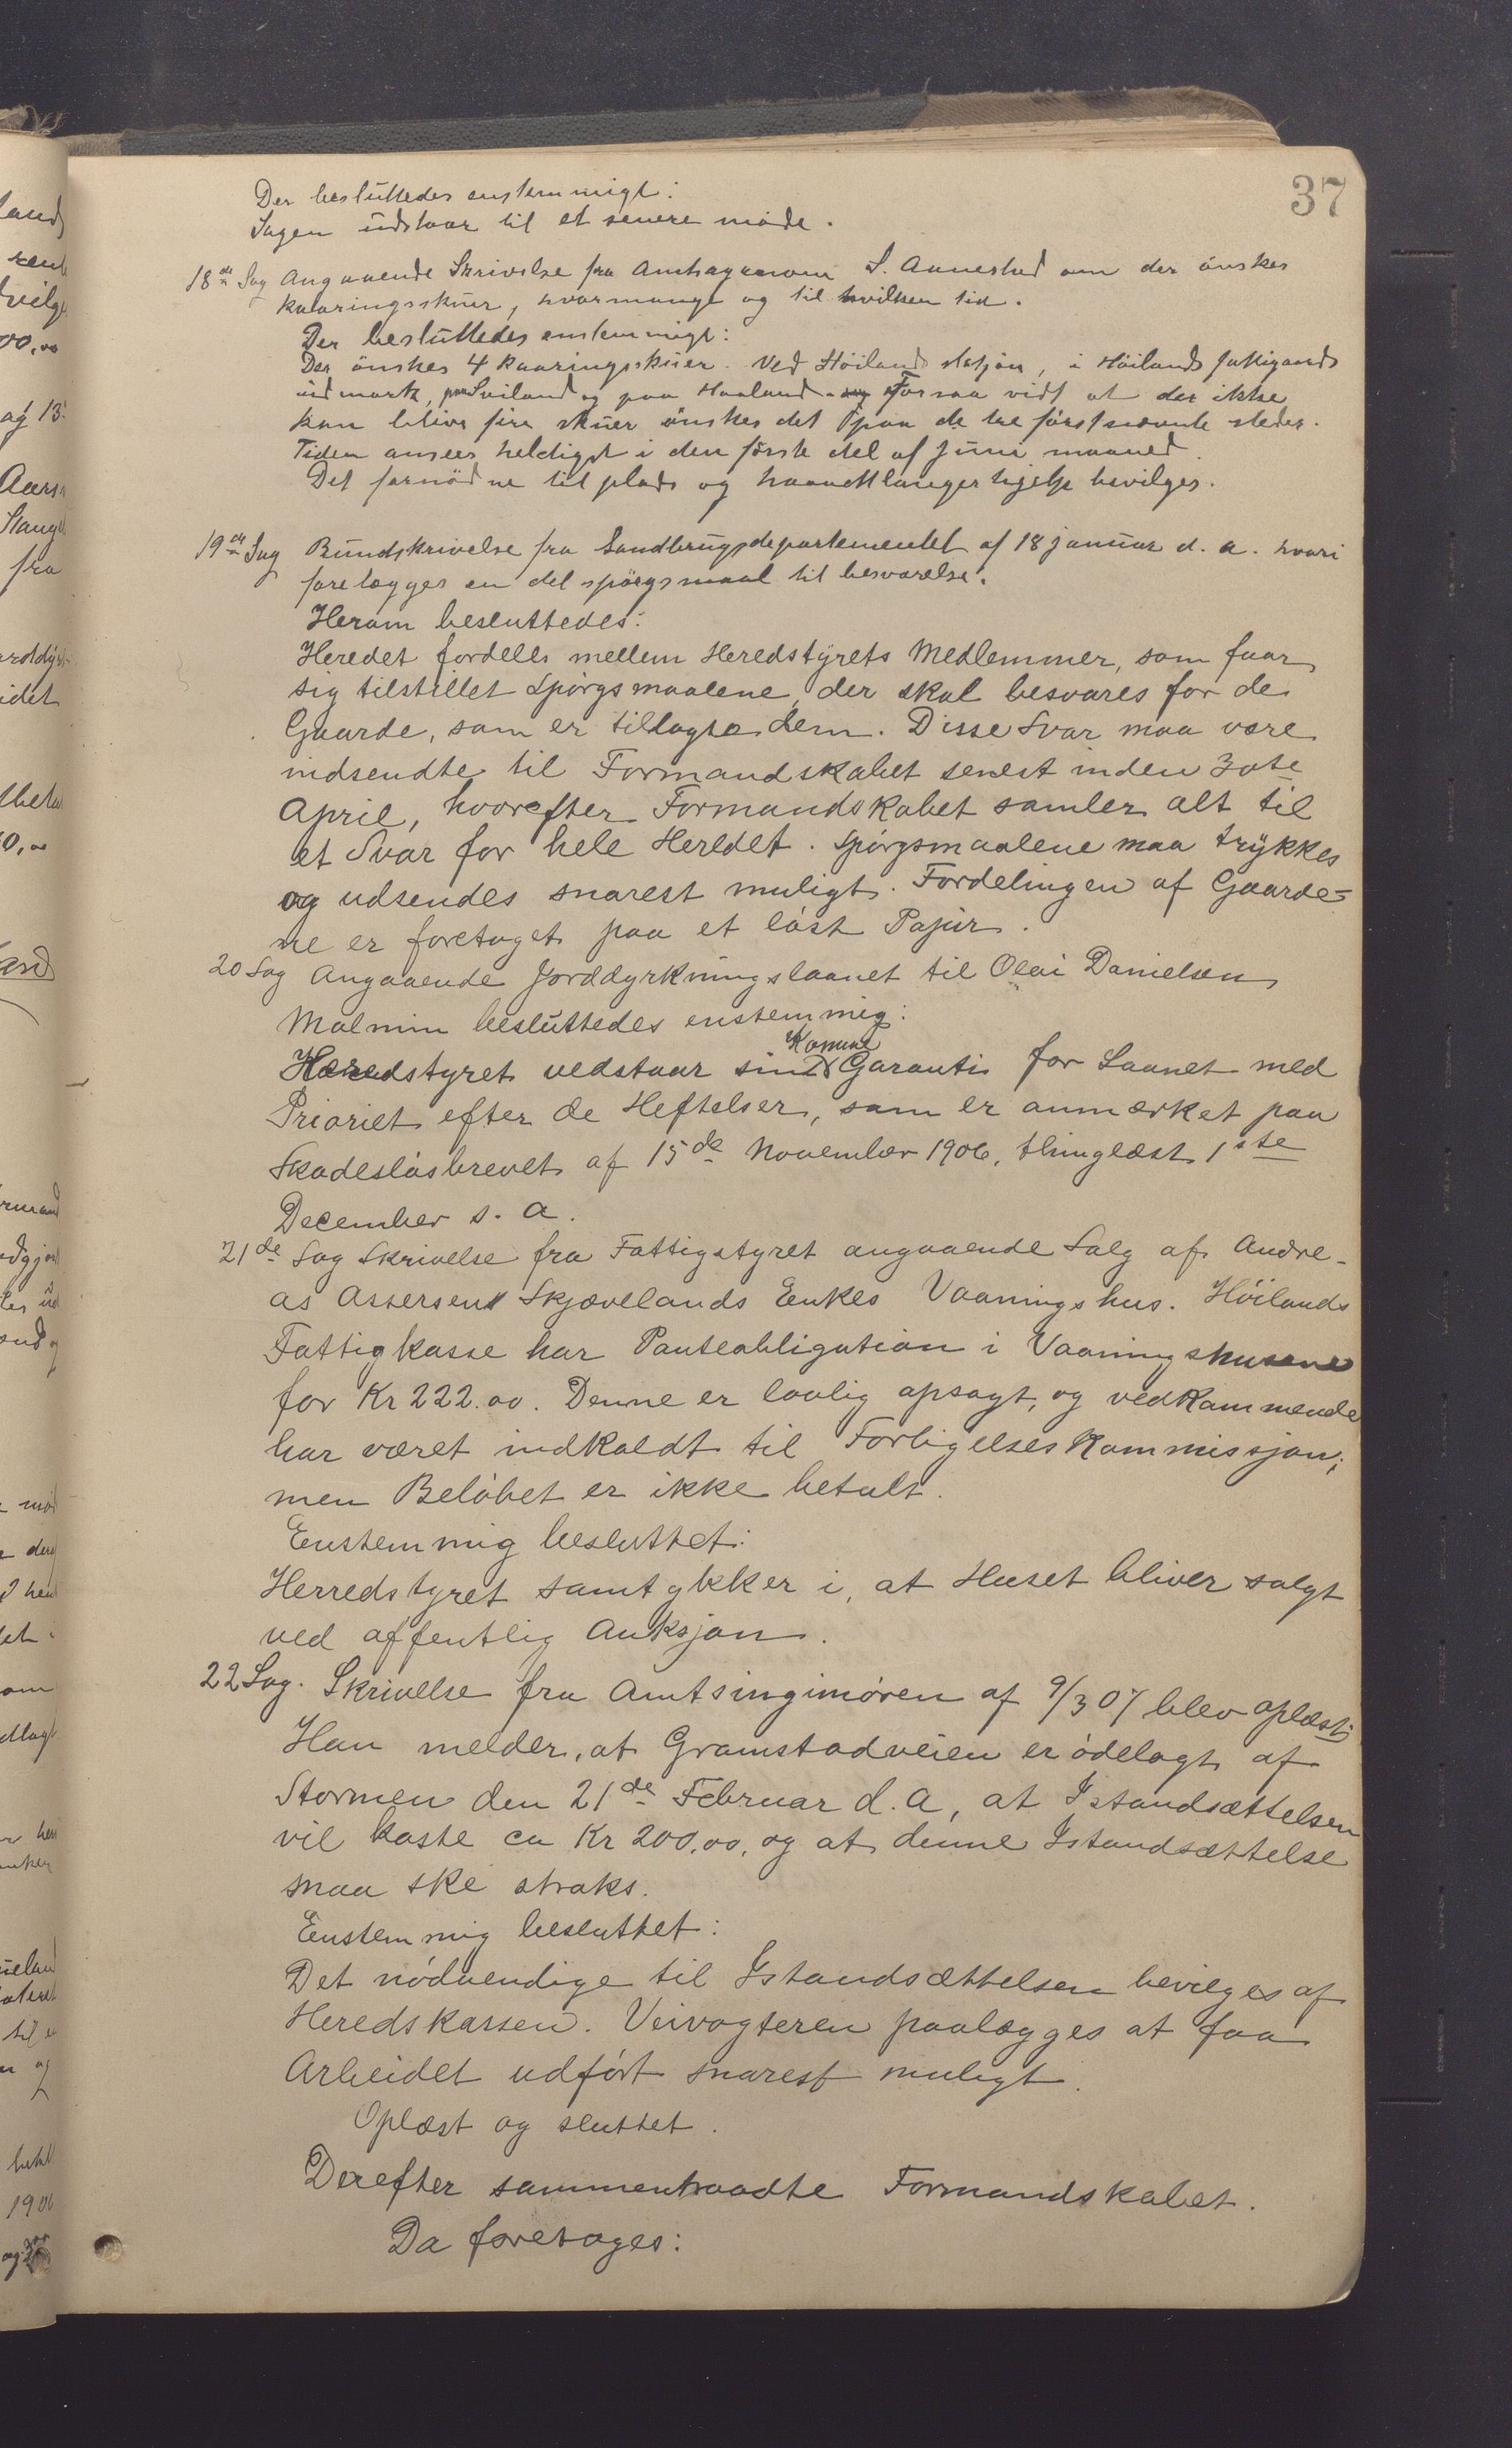 37
Der besluttedes enstemmigt:
Sagen udstaar til et senere möde.
18de Sag Angaaende Skrivelse fra Amtsagronom S. Aanestad om der önskes
kaaringsskuer, hvormange og til hvilken tid.
Der besluttedes enstemmigt:
Der önskes 4 kaaringsskuer. Ved Höiland stasjon, i Höilands fattigaards
udmark, paa Sviland og paa Hanland. Forsaa vidt at der ikke
kan blive fire skuer önskes det paa de tre förstnævnte steder.
Tiden ansees heldigst i den förste del af Juni maaned.
Det fornödne til plads og haandtlangerhjelp bevilges.
19de Sag Rundskrivelse fra Landbrugsdepartementet af 18 januar d. a. hvori
forelægges en del spörgsmaal til besvarelse.
Herom besluttedes:
Heredet fordeles mellem Heredstyrets Medlemmer, som faar
sig tilstillet Spörgsmaalene, der skal besvares for de
Gaarde, som er tillagte dem. Disse Svar maa være
indsendte til Formandskabet senest inden 30te
April, hvorefter Formandskabet samler alt til
et Svar for hele Heredet. Spörgsmaalene maa trykkes
og udsendes snarest muligt. Fordelingen af Gaarde-
ne er foretaget paa et löst Papir.
20 Sag Angaaende Jorddyrkningslaanet til Olai Danielsen
Malmin besluttedes enstemmig:
Komune
Heredstyret vedstaar sin Garanti for Laanet med
Prioriet efter de Heftelser, som er anmærket paa
Skadeslösbrevet af 15de November 1906, thinglæst 1ste
December s. a.
21de Sag Skrivelse fra Fattigstyret angaaende Salg af Andre-
as Assersens Skjævelands Enkes Vaaningshus. Höilands
Fattigkasse har Panteobligation i Vaaningshusene
for Kr 222.00. Denne er lovlig opsagt, og vedkommende
har været indkaldt til Forligelseskommissjon;
men Belöbet er ikke betalt.
Enstemmig besluttet:
Herredstyret samtykker i, at Huset bliver solgt
ved offentlig Auksjon.
22 Sag. Skrivelse fra Amtsinginiören af 9/3 07 blev oplæst;
Han melder, at Gramstadveien er ödelagt af
Stormen den 21de Februar d. a, at Istandsættelsen
vil koste ca Kr 200,00, og at denne Istandsættelse
maa ske straks.
Enstemmig besluttet:
Det nödvendige til Istandsættelsen bevilges af
Heredskassen. Veivogteren paalægges at faa
Arbeidet udfört snarest muligt.
Oplæst og sluttet.
Derefter sammentraadte Formandskabet.
Da foretoges: